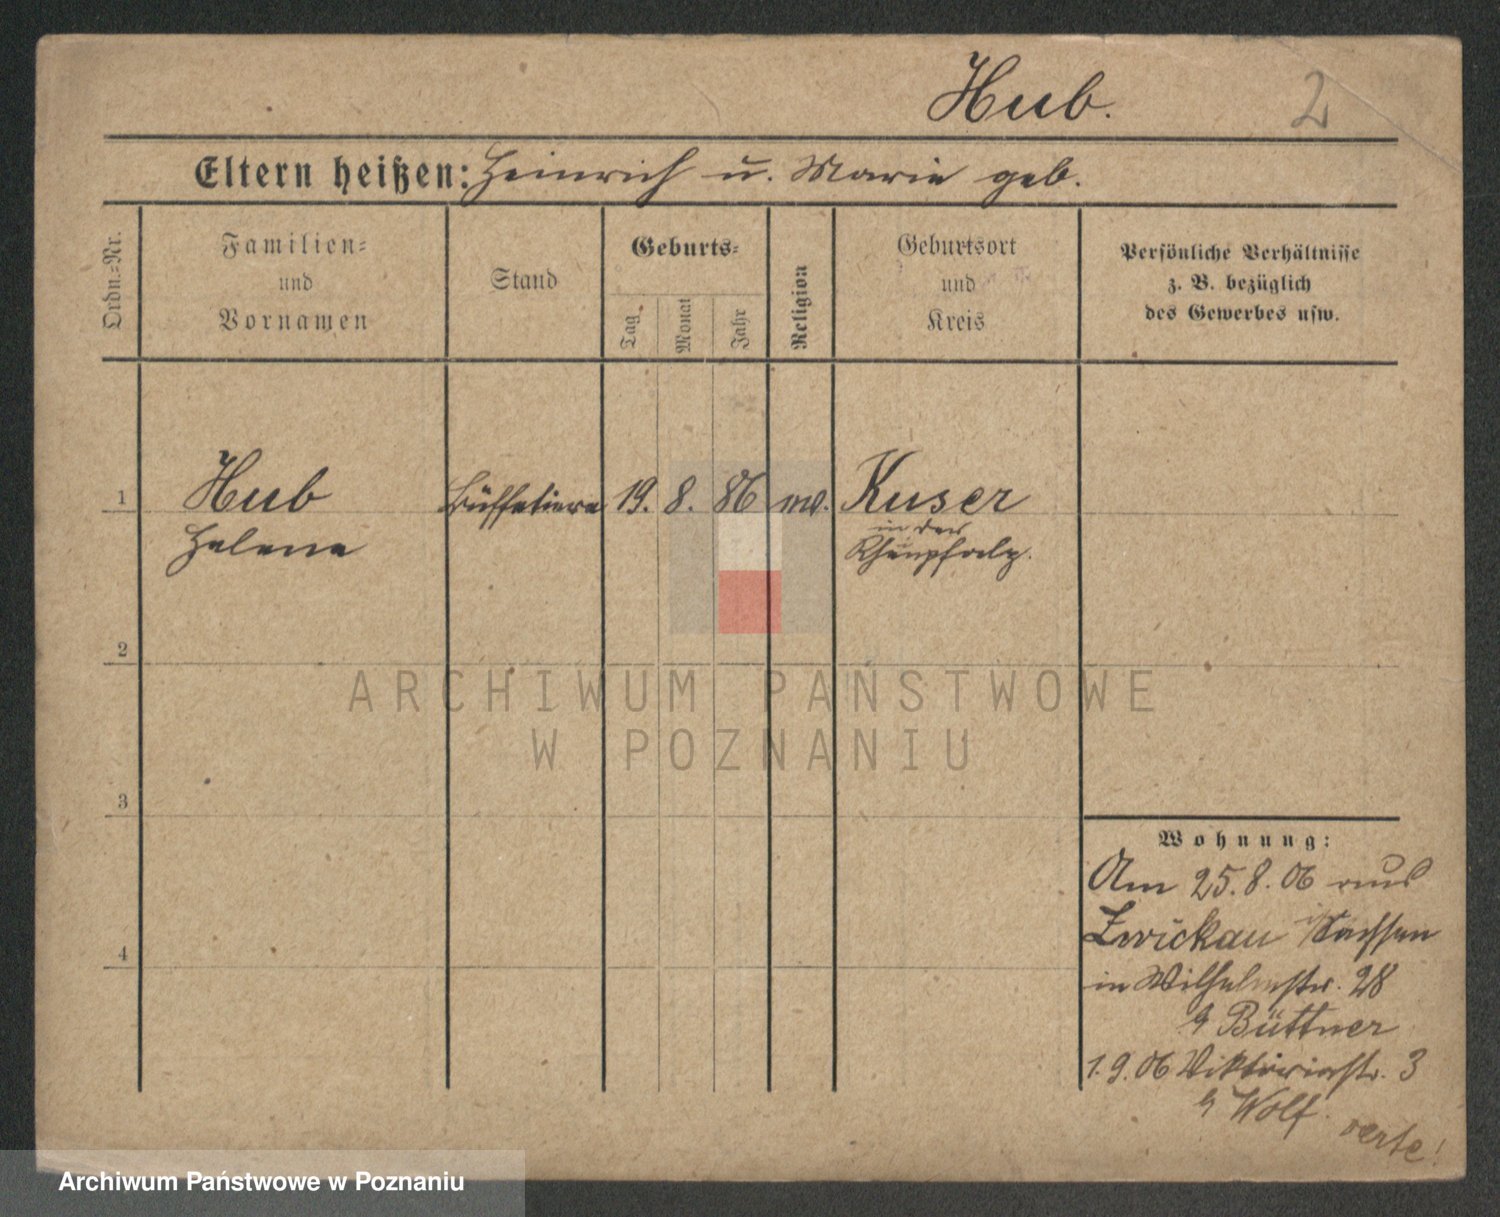 Hub. 2
Eltern heißen: Heinrich u. Marie geb.
Ordn.-Nr.
Familien-
und
Vornamen
Stand
Geburts-
Tag
Monat
Jahr
Religion
Geburtsort
und
Kreis
Persönliche Verhältnisse
z. B. bezüglich
des Gewerbes usw.
1 Hub Büffetiere 19. 8. 86 Kuser
in der
Helene Rheinpfalz.
2
3
4
ARCHIWUM PAŃSTWOWE
W POZNANIU
Wohnung:
Am 25.8.06 aus
Zwickau i/Sachsen
in Wilhelmstr. 28
Büttner
1.9.06 Viktoriastr. 3
Wolf.
verte!
Archiwum Państwowe w Poznaniu